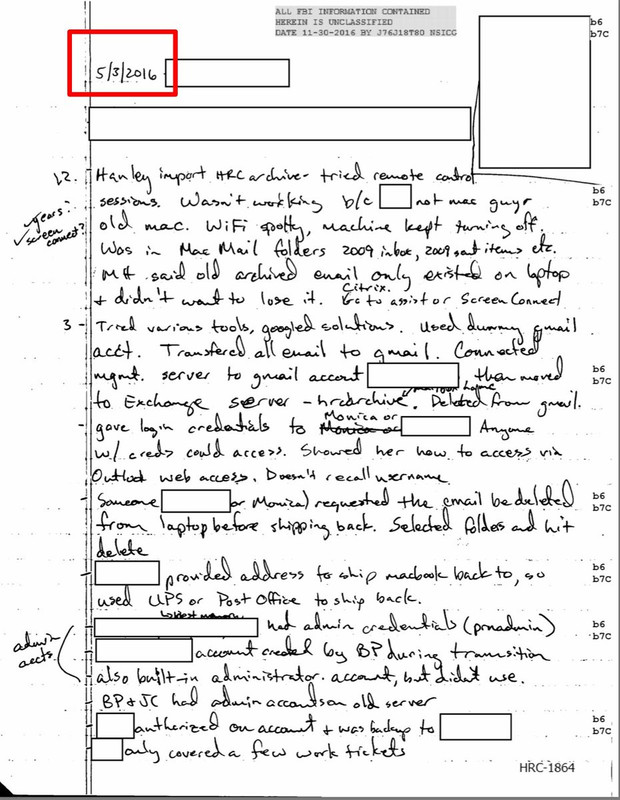 ALL FBI INFORMATION CONTAINED
HEREIN IS UNCLASSIFIED
DATE 11-30-2016 BY J76J18T80 NSICG
b6
b7C
5/3/2016 -
12. Hanley import HRC archive - tried remote control
sessions. Wasn't working b/c not mac guy
b6
b7C
years?
screen connect?
old mac. WiFi spotty, machine kept turning off.
Was in Mac Mail folders 2009 inbox, 2009 sent items etc.
MH said old archived email only existed on laptop
Citrix.
& didn't want to lose it. to assist or Screen Connect
3 - Tried various tools, googled solutions. Used dummy gmail
acct. Transfered all email to gmail. Connected
mgmt. server to gmail account , then moved
b6
b7C
mailbox name
to Exchange server - hrcarchive. Deleted from gmail.
Monica or
- gave login credentials to Monica or Anyone
w/ creds could access. Showed her how to access via
Outlook web access. Doesn't recall username.
- Someone or Monica) requested the email be deleted
b6
b7C
from laptop before shipping back. Selected folders and hit
delete
- provided address to ship macbook back to, so
b6
b7C
used UPS or Post Office to ship back.
admin
accts
- had admin credentials (prnadmin)
b6
b7C
account created by BP during transition
also built-in administrator account, but didn't use.
BP & JC had admin accounts on old server
- authorized on account & was backup to
b6
b7C
- only covered a few work tickets
HRC-1864